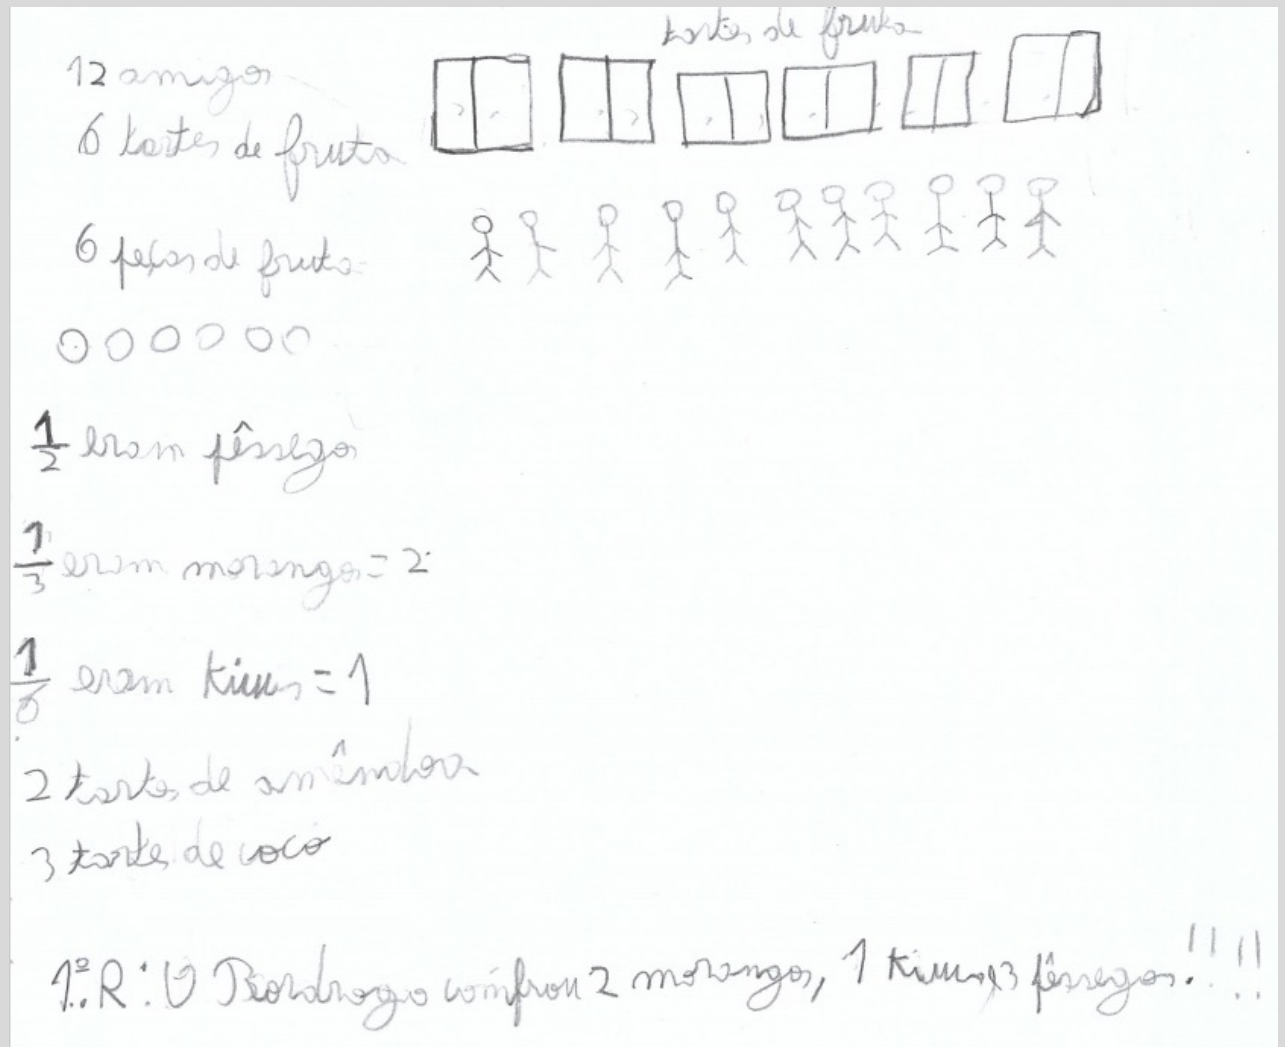 tartes de fruta
12 amigos
6 tartes de fruta
6 peças de fruta
1/2 eram pêssegos
1/3 eram morangos = 2
1/6 eram kiwis = 1
2 tartes de amêndoa
3 tartes de coco
1.º R: O comprou 2 morangos, 1 kiwi e 3 pêssegos!!!!